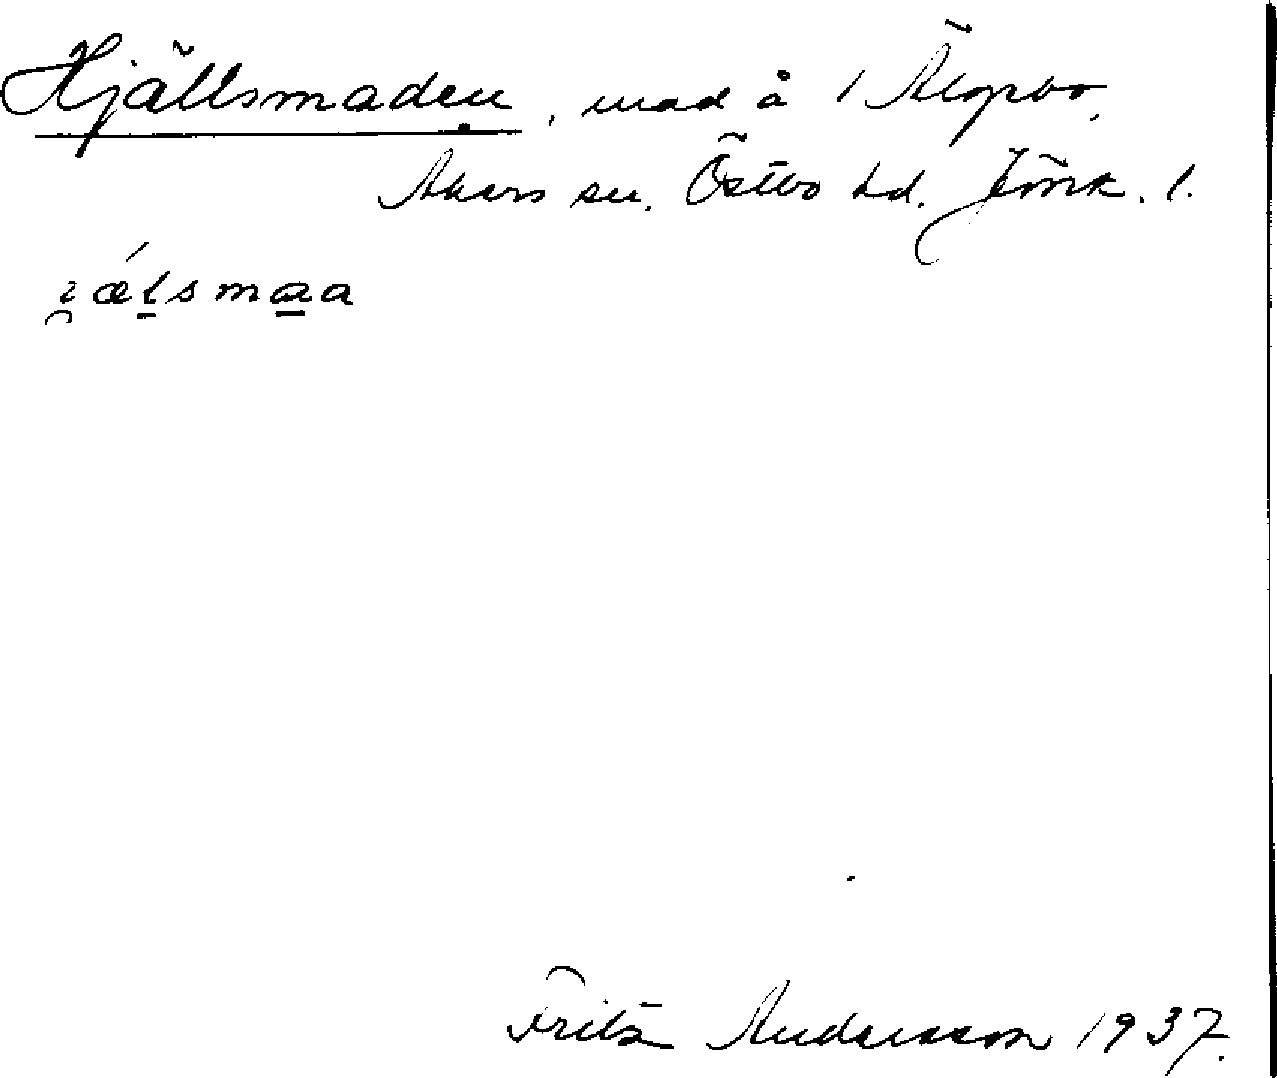 Hjällsmaden, mad å 1 Älgabo,
Åkers sn. Östbo hd. Jönk. l.
i̯ǽlsmaa
Fritz Andersson 1937.